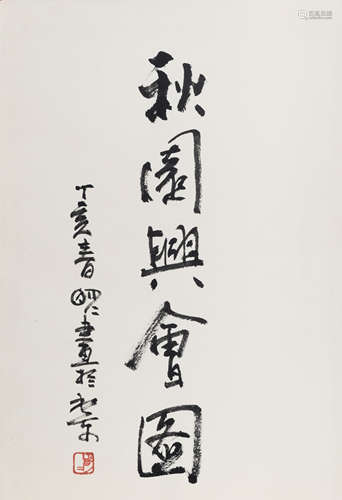 秋園興會圖
丁亥春明仁畫於北京